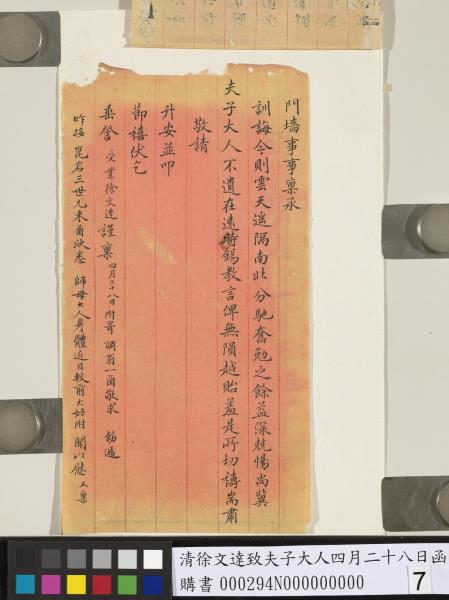 門墻事事稟承
訓誨今則雲天遥隔南北分馳奮勉之餘益深兢惕尚冀
夫子大人不遺在遠時錫教言俾無隕越貽羞是所切禱耑肅
敬請
升安並叩
節禧伏乞
垂詧 受業徐文達謹稟 四月二十八日附寄 調翁一函敬求 飭遞
昨接 菎岩三世兄來函欣悉 師母大人身體近日較前大好附 聞以慰 又稟
清徐文達致夫子大人四月二十八日函
購書 000294N000000000
7